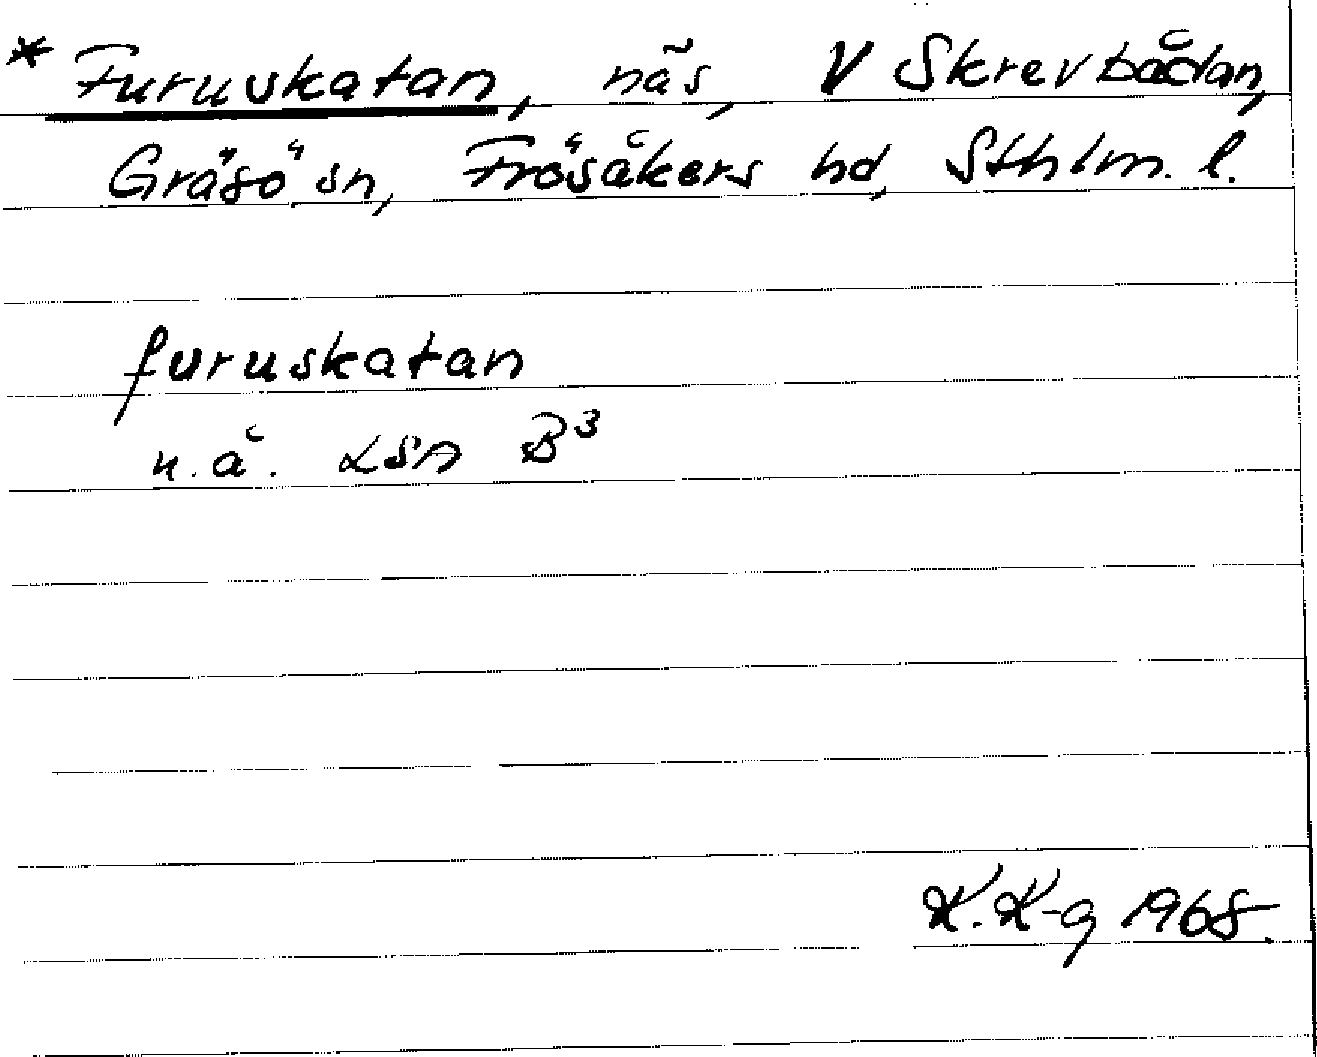 * Furuskatan, näs, V Skrevbådan,
Gräsö sn, Frösåkers hd, Sthlm. l.
furuskatan
u.å. LSA B³
K. K-g 1968.